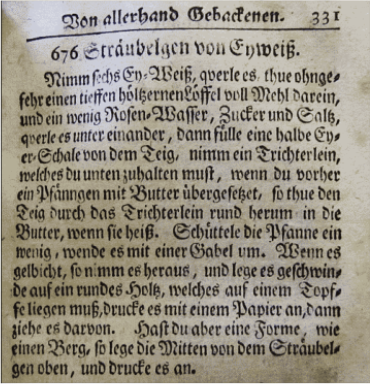 Von allerhand Gebackenen. 331
676 Sträubelgen von Eyweiß.
Nimm sechs Ey-Weiß, qverle es, thue ohnge-
fehr einen tieffen höltzernen Löffel voll Mehl darein,
und ein wenig Rosen-Wasser, Zucker und Saltz,
qverle es unter einander, dann fülle eine halbe Ey-
er-Schale von dem Teig, nimm ein Trichterlein,
welches du unten zuhalten must, wenn du vorher
ein Pfänngen mit Butter übergesetzet, so thue den
Teig durch das Trichterlein rund herum in die
Butter, wenn sie heiß. Schüttele die Pfanne ein
wenig, wende es mit einer Gabel um. Wenn es
gelbicht, so nimm es heraus, und lege es geschwin-
de auf ein rundes Holtz, welches auf einem Topf-
fe liegen muß, drucke es mit einem Papier an, dann
ziehe es darvon. Hast du aber eine Forme, wie
einen Berg, so lege die Mitten von dem Sträubel-
gen oben, und drucke es an.